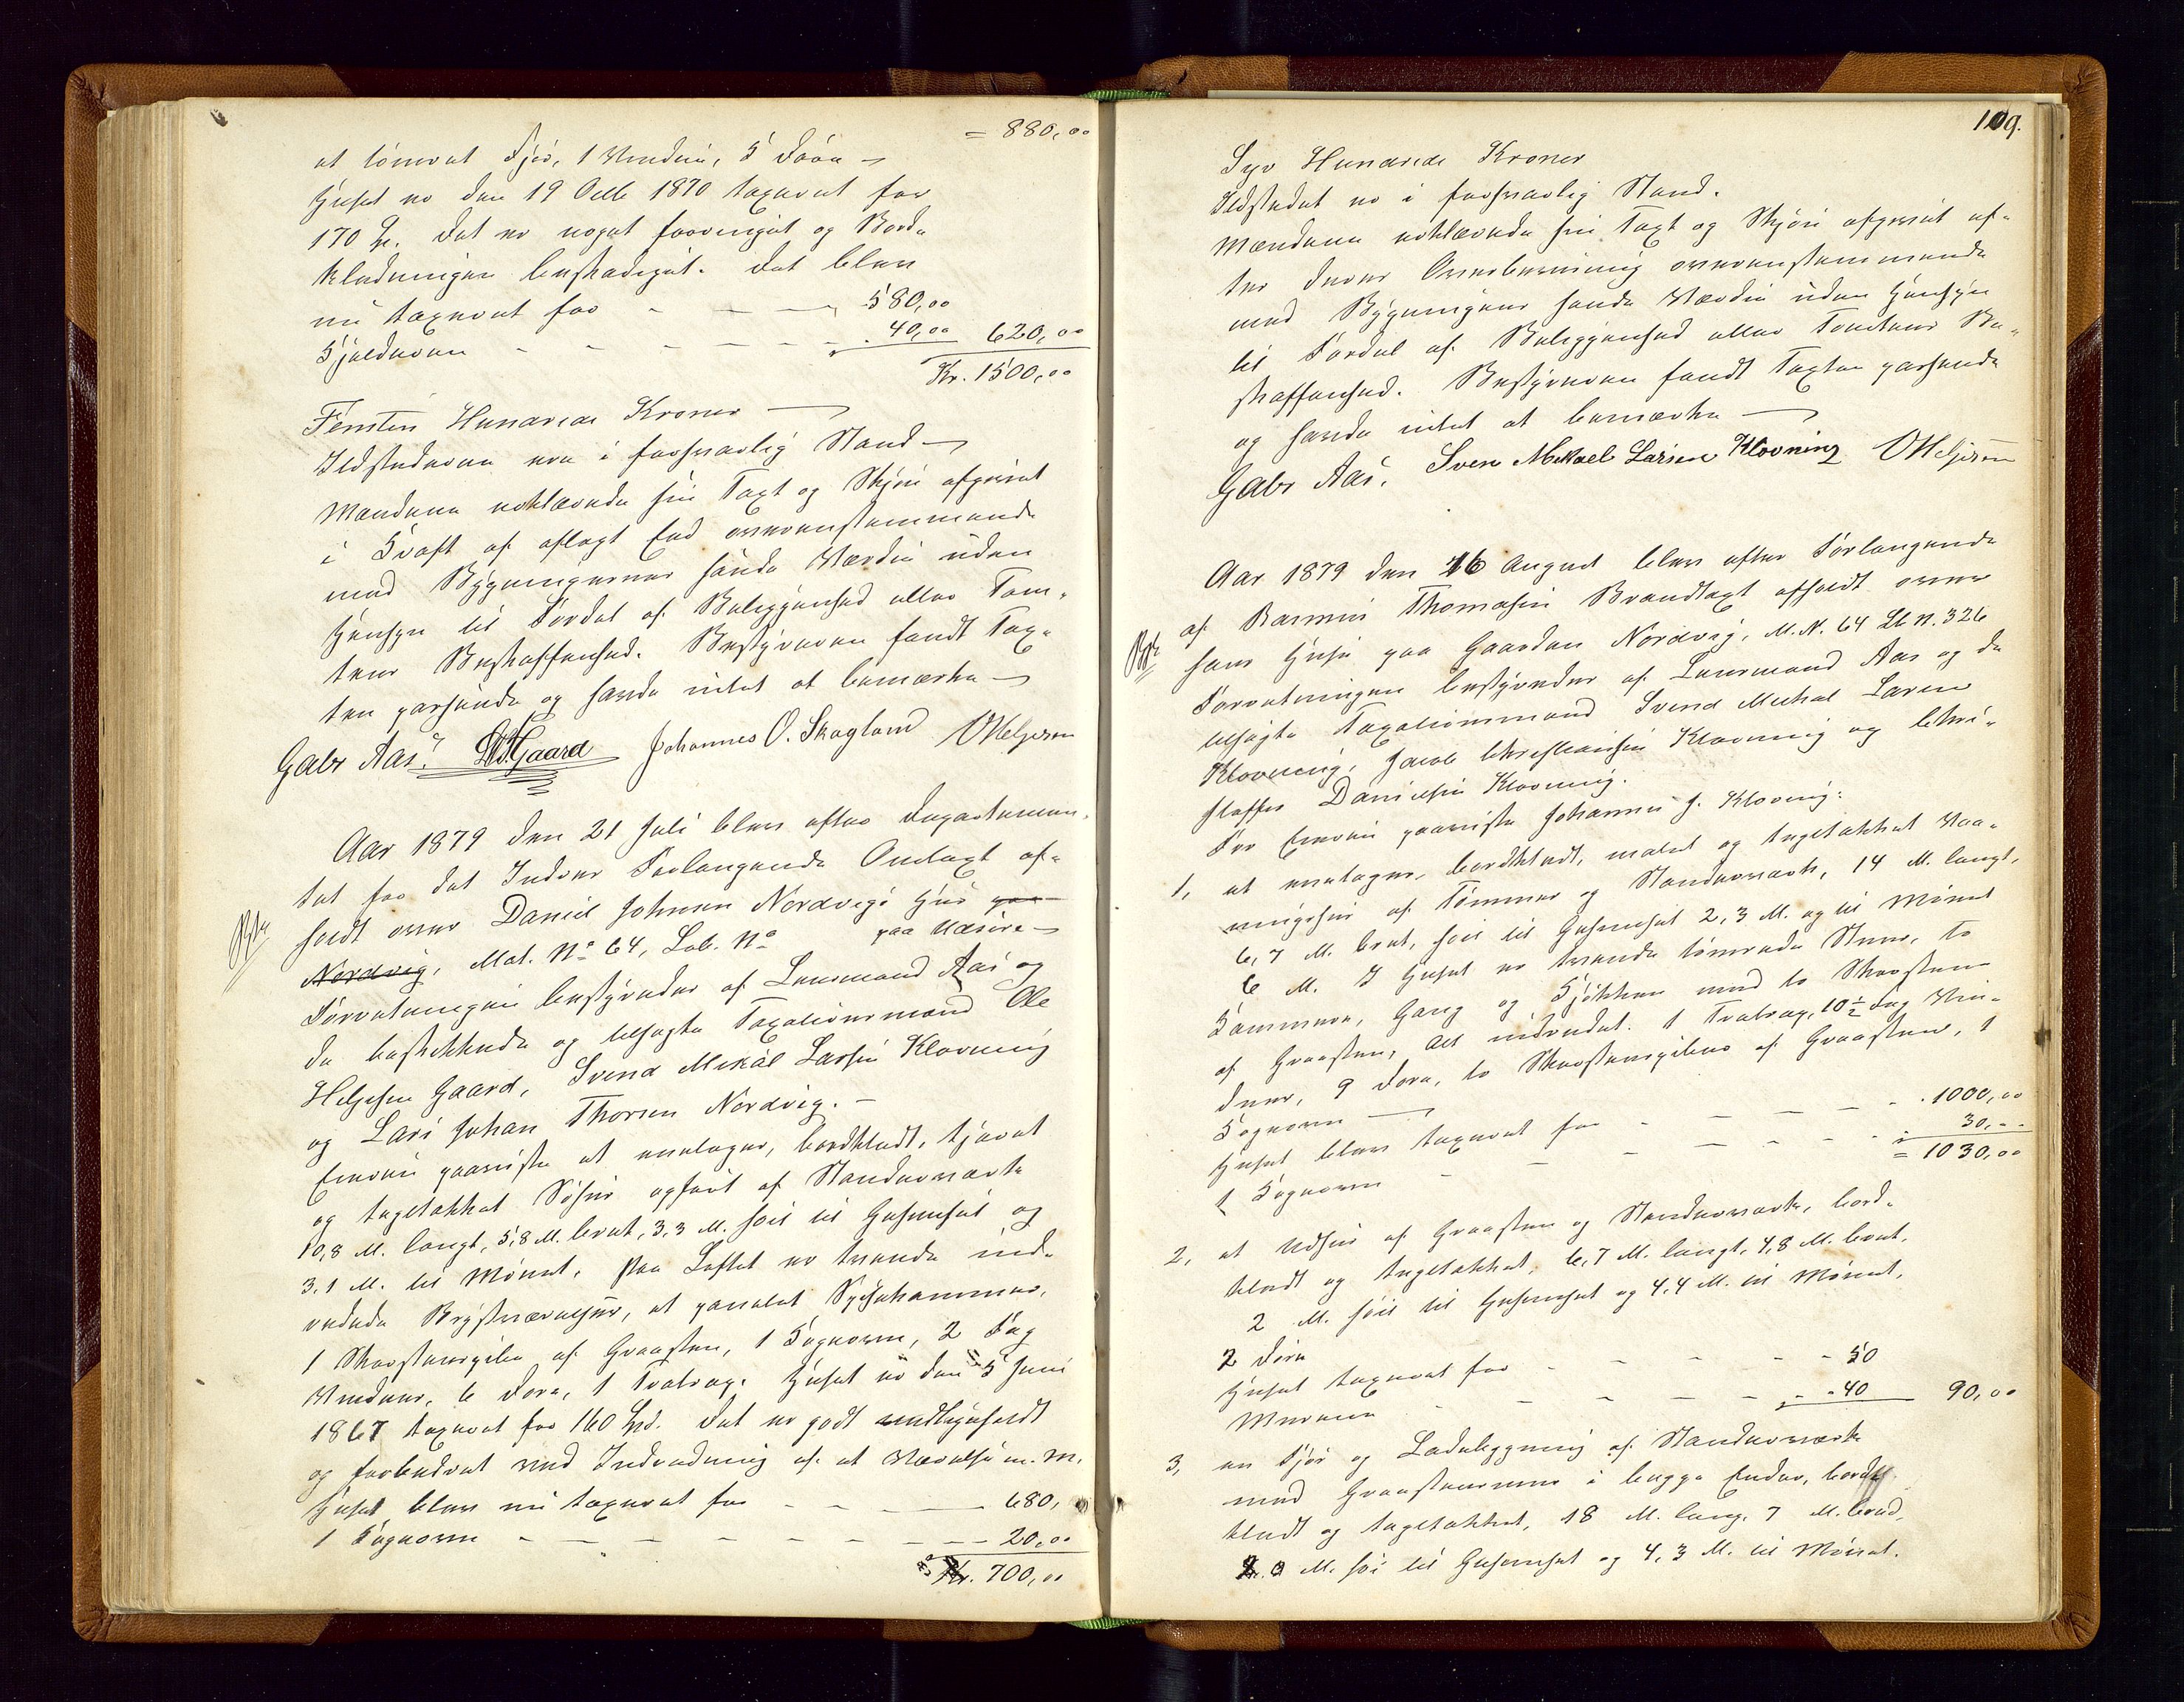 = 880,00
et tømret Fjøs, 1 Vindue, 5 Døre –
Huset er den 19 Octb 1870 taxeret for
170 Spd. Det er noget forringet og Bord-
klædningen beskadiget. Det blev
nu taxeret for - - - 580,00
Kjelderen - - - - - 40,00 620,00
Kr. 1500,00
Femten Hundrede Kroner —
Ildstederne ere i forsvarlig Stand –
Mændene erklærede sin Taxt og Skjøn afgivet
i Kraft af aflagt Eed overensstemmende
med Bygningernes sande Værdie uden
Hensyn til Fordel af Beliggenhed eller Tom-
tens Beskaffenhed. Bestyreren fandt Tax-
ten passende og havde intet at bemærke –
Gabr Aas. Gaard Johannes O. Skogland OHelgesen
Aar 1879 den 21 Juli blev efter Departemen-
tet for det Indres Forlangende Omtaxt af-
holdt over Daniel Johnsen Nordvigs Hus paa
Nordvig, Mat. No 64, Løb. No paa Udsire –
Forretningen bestyredes af Lensmand Aas og
de beskikkede og tilsagte Taxationsmænd Ole
Helgesen Gaard, Svend Mikal Larsen Klovning
og Lars Johan Thorsen Nordvig. –
Eieren paaviste et enetages, bordklædt, tjæret
og tegltækket Søhus opført af Stenderværk
10,8 M. langt, 5,8 M. bredt, 3,3 M. høit til Gesimset og
3,1 M. til Mønet. Paa Loftet er tvende ind-
redede Brystværelser, et panelet Spisekammer,
1 Skorstenspibe af Graasten, 1 Kogeovn, 2 Fag
Vinduer, 6 Døre, 1 Trætrap. Huset er den 5 Juni
1867 taxeret for 160 Spd. Det er godt vedligeholdt
og forbedret ved Indredning af et Værelse m. M.
Huset blev nu taxeret for - - — 680,
1 Kogeovn - - - - - - 20,00
Kr. 700,00
109.
Syv Hundrede Kroner
Ildstedet er i forsvarlig Stand.
Mændene erklærede sin Taxt og Skjøn afgivet ef-
ter deres Overbevisning overensstemmende
med Bygningens sande Værdie uden Hensyn
til Fordel af Beliggenhed eller Tomtens Be-
skaffenhed. Bestyreren fandt Taxten passende
og havde intet at bemærke —
Gabr Aas. Sven Mekael Larsen Klovning OHelgesen
Aar 1879 den 16 August blev efter Forlangende
af Rasmus Thomasen Brandtaxt afholdt over
hans Huse paa Gaarden Nordvig, M.N. 64 Lb n. 326
Forretningen bestyredes af Lensmand Aas og de
tilsagte Taxationsmænd Svend Mickal Larsen
Klovning, Jacob Christiansen Klovning og Chri-
stoffer Danielsen Klovning.
For Eieren paaviste Johannes J. Klovning:
1, et enetages, bordklædt, malet og tegltækket Vaa-
ningshus af Tømmer og Stenderværk, 14 M. langt,
6,7 M. bredt, høit til Gesimset 2,3 M. og til Mønet
6 M. I Huset er tvende tømrede Stuer, to
Kammere, Gang og Kjøkken med to Skorstene
af Graasten, Alt indredet. 1 Trætrap, 10½ Fag Vin-
duer, 9 Døre, to Skorstenspiber af Graasten, 1
Kogeovn —
Huset blev taxeret for - - - - - 1000,00
1 Kogeovn - - - - - 30,--
= 1030,00
2, et Udhus af Graasten og Stenderværk, bord-
klædt og tegltækket, 6,7 M. langt, 4,8 M. bredt,
2 M. høit til Gesimset og 4,4 M. til Mønet.
2 Døre
Huset taxeret for - - - - - 50
Murene - - - - - 40 90,00
3, en Fjøs og Ladebygning af Stenderværk
med Graastensmur i begge Ender, bord-
klædt og tegltækket, 18 M. lang, 7 M. bred,
2.0 M. høi til Gesimset og 4,3 M. til Mønet.